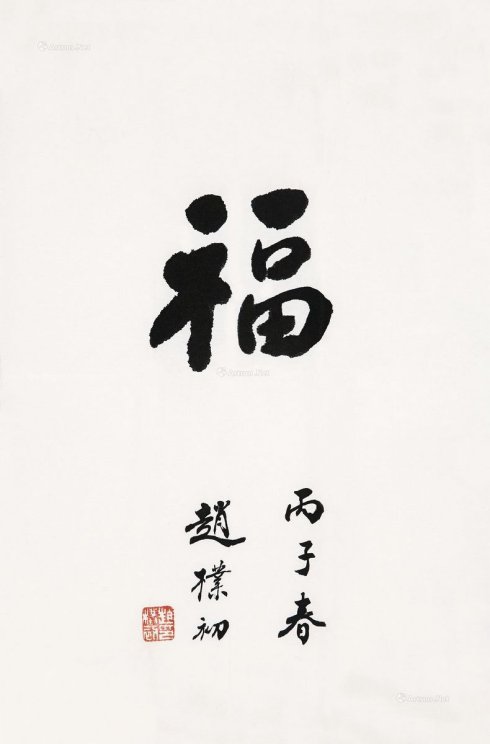 福
丙子春
趙樸初
趙樸初印
Artron.Net
Artron.Net
Artron.Net
Artron.Net